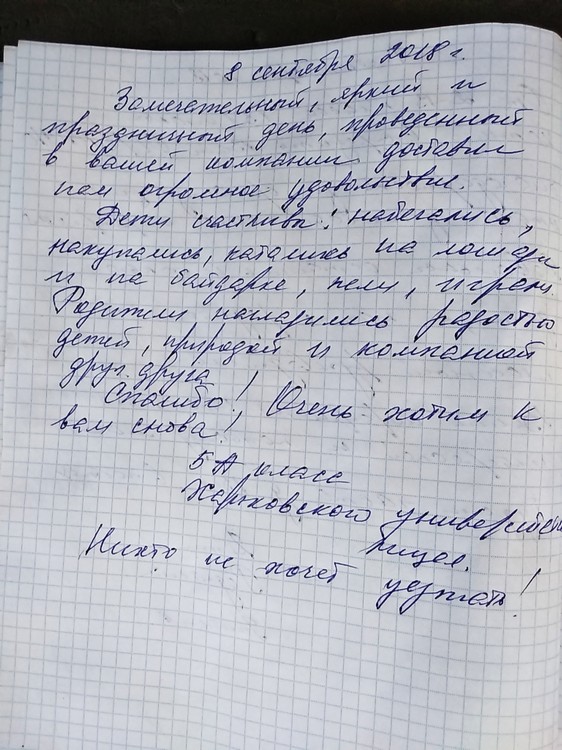 8 сентября 2018 г.
Замечательный, яркий и
праздничный день, проведенный
в вашей компании доставил
нам огромное удовольствие.
Дети счастливы! набегались,
накупались, катались на лошади
и на байдарке, пели, играли.
Родители насладились радостью
детей, природой и компанией
друг друга
Спасибо! Очень хотим к
вам снова!
5 А класс
Харьковского университет
лицея.
Никто не хочет уезжать!